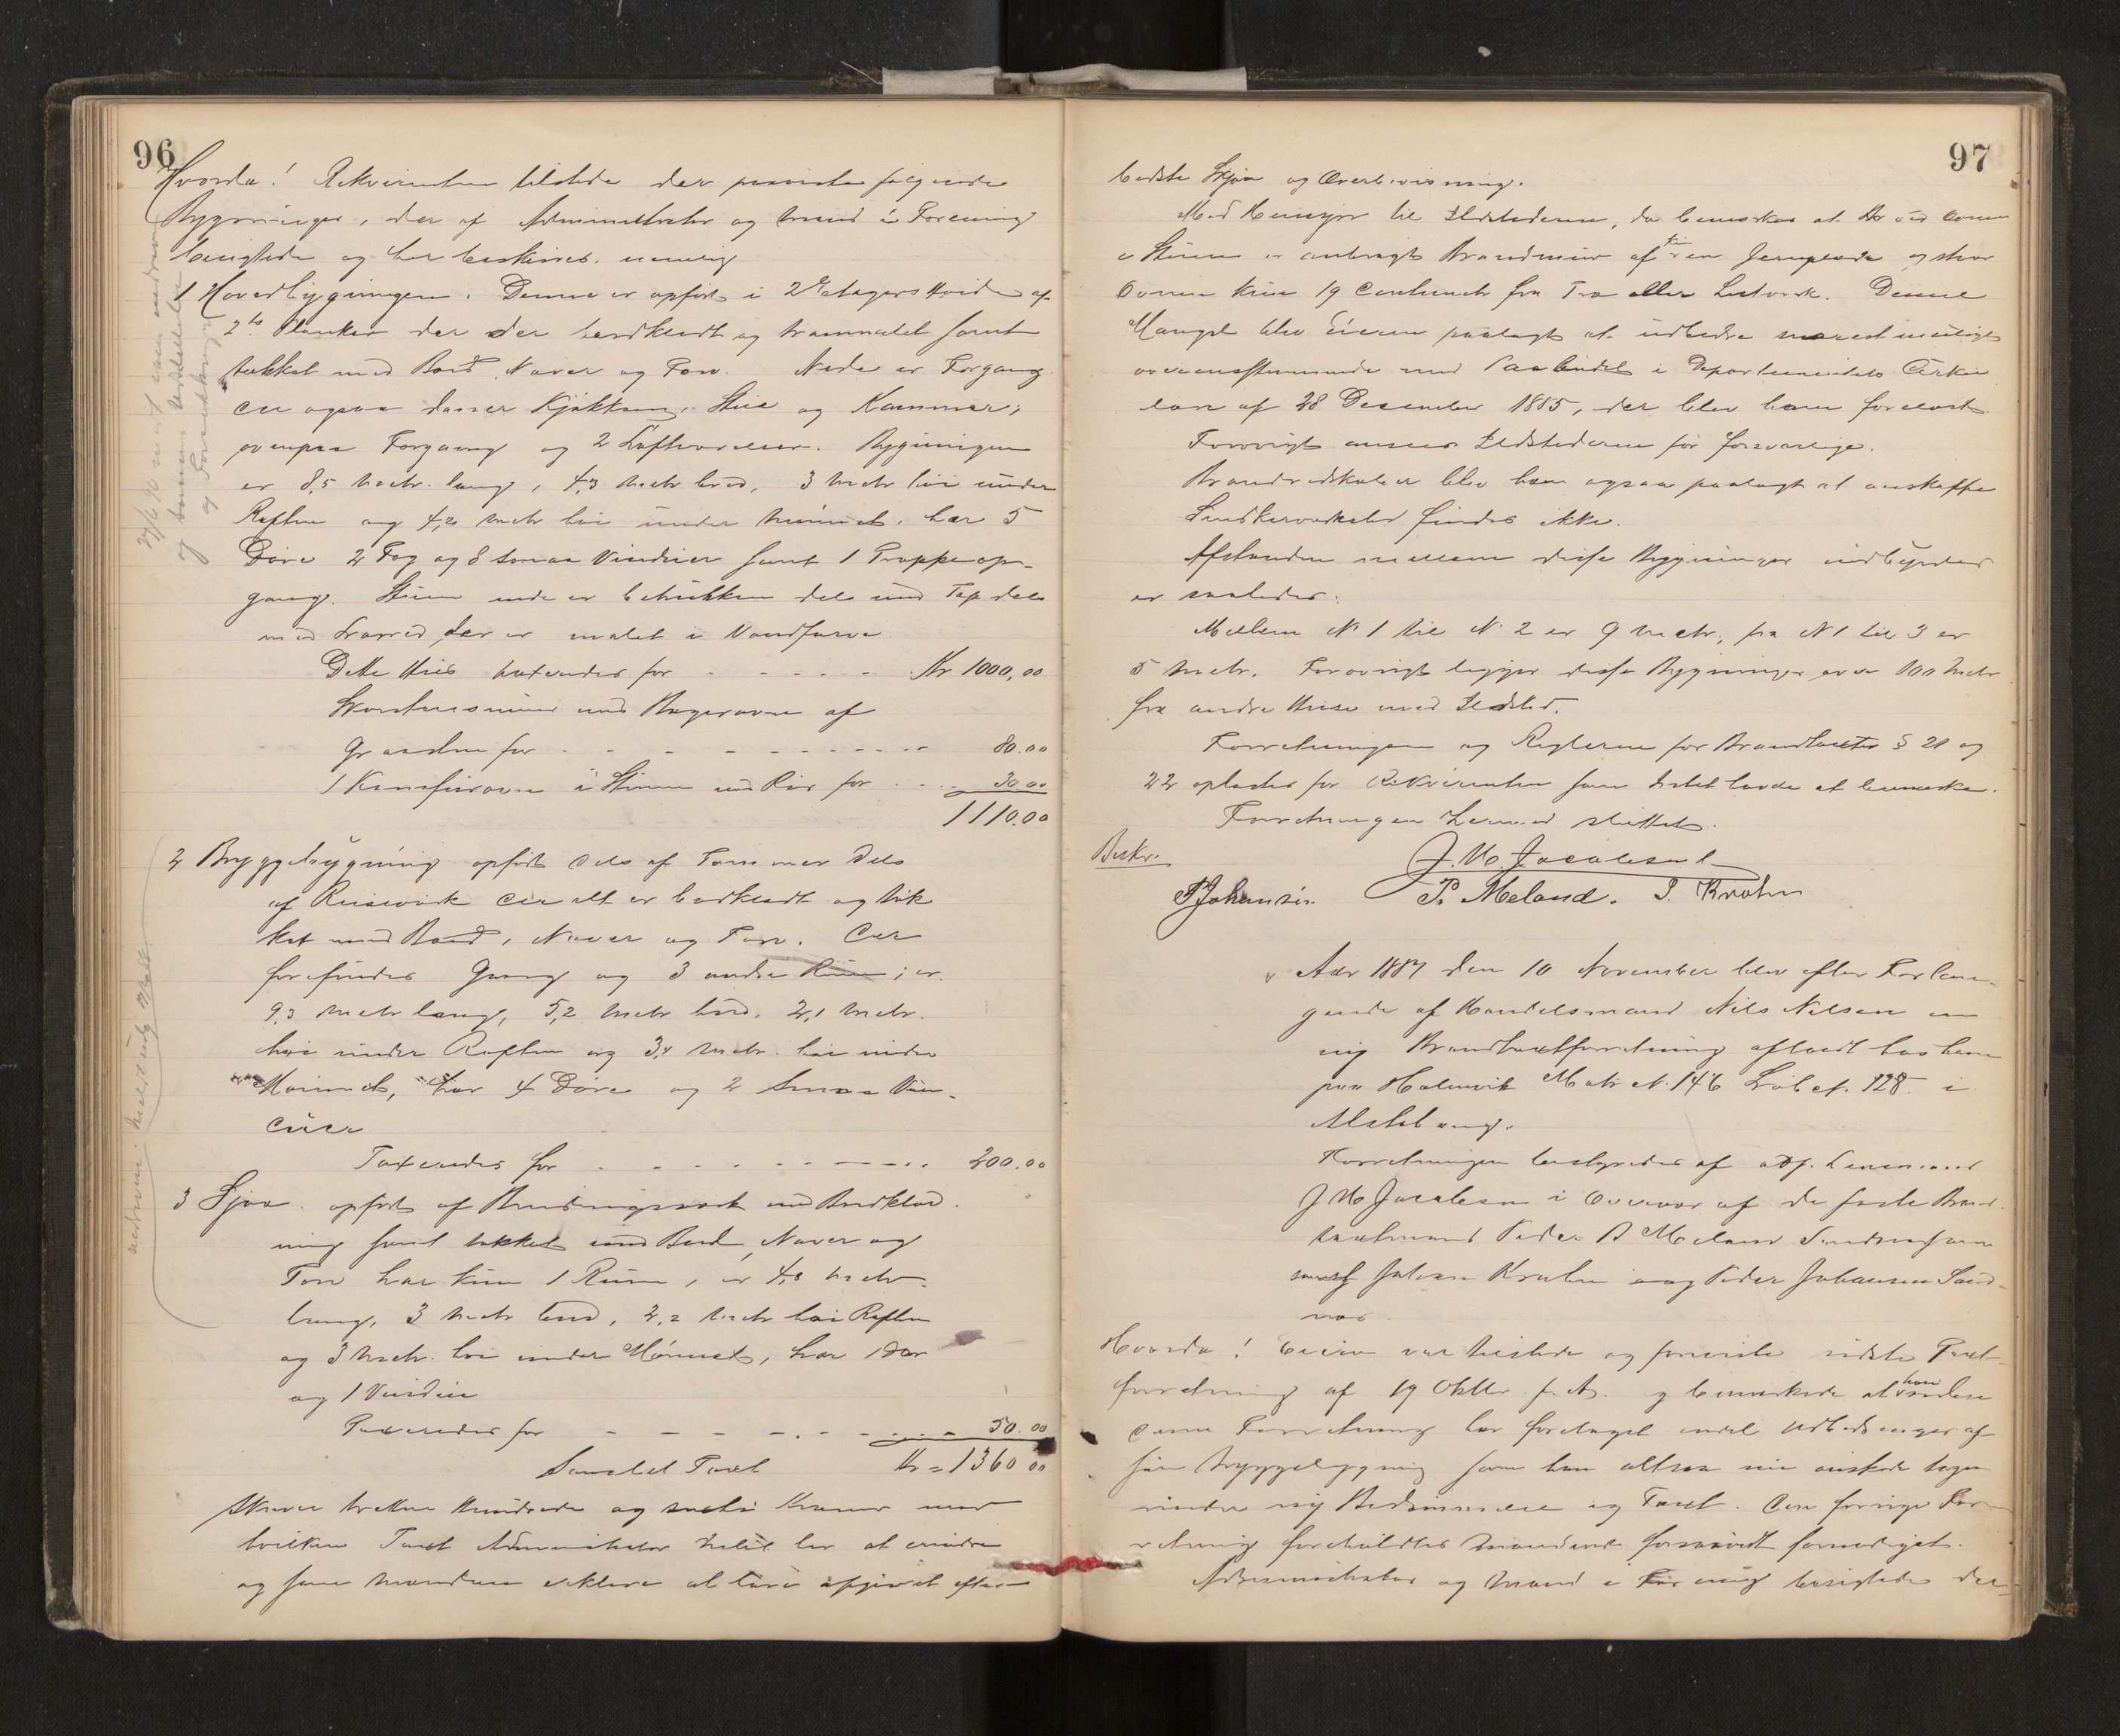 96
Hvorda! Rekvirenten tilstede der paaviste følgende
Bygninger, der af Administrator og Mænd i Forening
besigtedes og her beskrives nemlig
1 Hovedbygningen. Denne er opført i 2 Etagers Høide af
2 ts Planker der er bordklædt og brammalet samt
tækket med Bord, Næver og Torv. Nede er Forgang
der ogsaa danner Kjøkken, Stue og Kammer;
ovenpaa Forgang og 2 Loftværelser. Bygningen
er 8,5 Metr. lang, 4,3 Metr bred, 3 Metr høi under
Raften og 4,2 Metr høi under Mønnet, har 5
Døre 2 Fag og 8 smaa Vinduer samt 1 Trappeop-
gang. Stuen nede er betrukken dels med Tap dels
med Lærred der er malet i Vandfarve
Dette Hus taxeredes for Kr 1000,00
Skorstensmuur med Bagerovn af
Graasten for 80.00
1 Kamfuirovn i Stuen med Rør for 30.00
1110.00
2 Bryggebygning opført dels af Tømmer dels
af Reisværk der alt er bordklædt og tæk
ket med Bord, Næver og Torv. Der
forefindes Gang og 3 andre Rum; er
9,3 Metr lang, 5,2 Metr bred, 2,1 Metr.
høi under Raften og 3,4 Metr. høi under
Mønnet, har 4 Døre og 2 smaa Vin-
duer
Taxeredes for 200.00
3 Sjaa opført af Bindingsværk med Bordklæd-
ning samt tækket med Bord, Næver og
Torv har kun 1 Rum, er 4,8 Metr
lang, 3 Metr bred, 2,2 Metr høi Raften
og 3 Metr. høi under Mønnet, har 1 Dør
og 1 Vindue
Taxeredes for 50.00
Samlet Taxt Kr = 1360 00
Skriver tretten Hundrede og seksti Kroner mod
hvilken Taxt Administrator intet har at erindre
og som Mændene erklære at være afgivet efter
97
bedste Skjøn og Overbevisning.
Med Hensyn til Ildstederne, da bemærkes at der ved Ovnen
i Stuen er anbragt Brandmur af en Jernplade og staar
Ovnen kun 19 Centimetr fra Træ eller Listværk. Denne
Mangel blev Eieren paalagt at udbedre snarest muligt
overensstemmende med Paabudet i Departementets Cirku
lære af 28 December 1885, der blev ham forelæst
Forøvrigt ansees Ildstederne for forsvarlige.
Brandredskaber blev ham ogsaa paalagt at anskaffe
findes ikke.
Afstanden mellem disse Bygninger indbyrdes
er saaledes:
Mellem N. 1 til N. 2 er 9 Metr, fra N 1 til 3 er
5 Metr. Forøvrigt ligger disse Bygninger over 100 Metr
fra andre Huse med Ildsted.
Forretningen og Reglerne for Brandtaxter § 21 og
22 oplæstes for Rekvirenten som Intet havde at bemærke.
Forretningen hermed sluttet.
Beskr.
J. M. Jacobsen
P Johansen P. Meland. J. Krohn
Aar 1887 den 10 November blev efter Forlan-
gende af Handelsmand Nils Nilsen en
ny Brandtaxtforretning afholdt hos ham
paa Holmvik Matr N. 146 Løb N. 128 i
Alstahaug.
Forretningen bestyredes af Lensmand
J M Jacobsen i Overvær af de faste Brand-
taxtmænd Peder Meland
Johan Krohn og Peder Johansen Sand-
næs.
Hvorda! Eieren var tilstede og foreviste sidste Taxt-
forretning af 19 Oktbr f. A. og bemærkede at han siden
denne Forretning har foretaget endel Udbedringer af
sin Bryggebygning som han altsaa nu ønskede tagen
under ny Bedømmelse og Taxt. Den forrige For-
retning foreholdtes Mændene forsaavidt fornødiget.
Administrator og Mænd i Forening besigtede der-